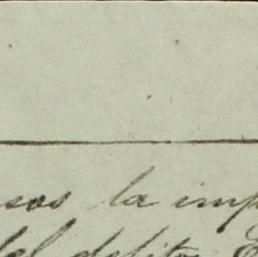 sos la imp
del debito